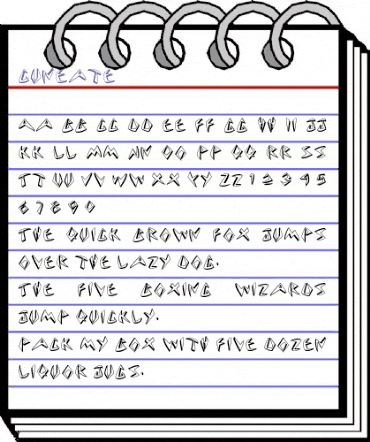 CUNEATE
AA BB CC DD EE FF GG HH II JJ
KK LL MM NN OO PP QQ RR SS
TT UU VV WW XX YY ZZ 1 2 3 4 5
6 7 8 9 0
THE QUICK BROWN FOX JUMPS
OVER THE LAZY DOG.
THE FIVE BOXING WIZARDS
JUMP QUICKLY.
PACK MY BOX WITH FIVE DOZEN
LIQUOR JUGS.